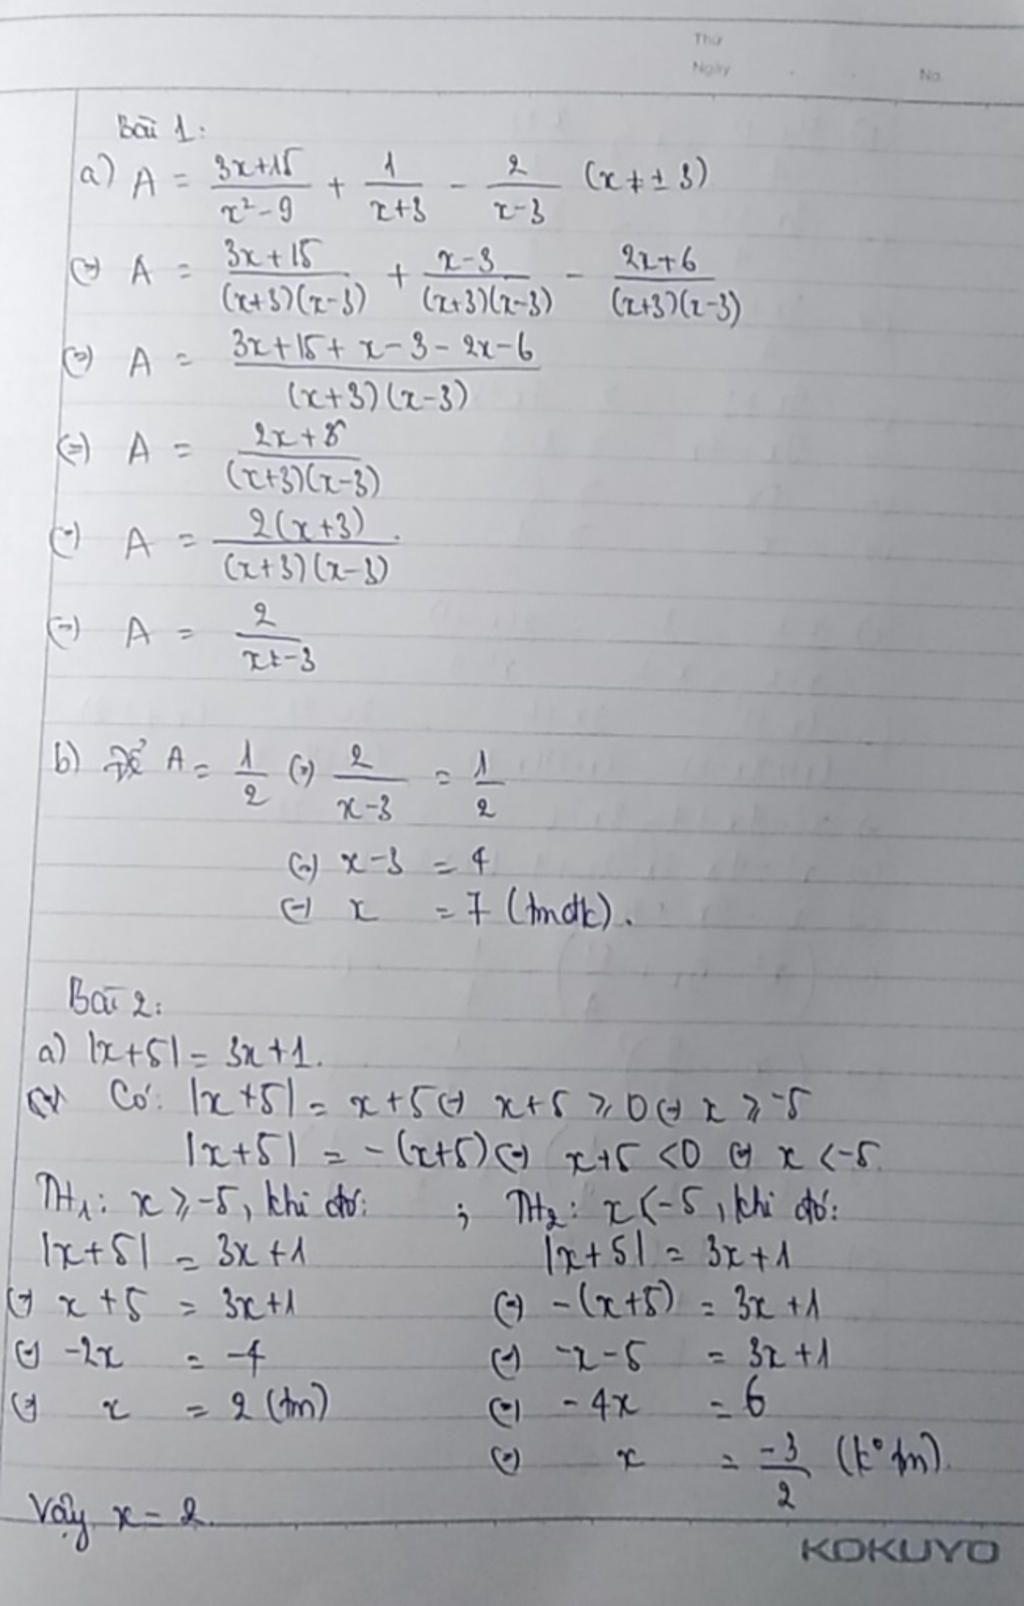 Thứ
Ngày . . No.
Bài 1:
a) A = (3x+15)/(x²-9) + 1/(x+3) - 2/(x-3) (x ≠ ± 3)
(=) A = (3x+15)/((x+3)(x-3)) + (x-3)/((x+3)(x-3)) - (2x+6)/((x+3)(x-3))
(=) A = (3x+15+x-3-2x-6)/((x+3)(x-3))
(=) A = (2x+6)/((x+3)(x-3))
(=) A = 2(x+3)/((x+3)(x-3))
(=) A = 2/(x-3)
b) Để A = 1/2 (=) 2/(x-3) = 1/2
(=) x-3 = 4
(=) x = 7 (tmđk).
Bài 2:
a) |x+5| = 3x+1.
Có: |x+5| = x+5 (=) x+5 ⩾ 0 (=) x ⩾ -5
|x+5| = -(x+5) (=) x+5 < 0 (=) x < -5.
TH₁: x ⩾ -5, khi đó: ; TH₂: x < -5, khi đó:
|x+5| = 3x+1 |x+5| = 3x+1
(=) x+5 = 3x+1 (=) -(x+5) = 3x+1
(=) -2x = -4 (=) -x-5 = 3x+1
(=) x = 2 (tm) (=) -4x = 6
(=) x = -3/2 (k° tm).
Vậy x = 2.
KOKUYO